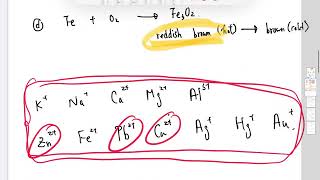 (d) Fe + O₂ → Fe₃O₂
reddish brown (hot) → brown (cold)
K⁺ Na⁺ Ca²⁺ Mg²⁺ Al³⁺
Zn²⁺ Fe²⁺ Pb²⁺ Cu²⁺ Ag⁺ Hg⁺ Au⁺